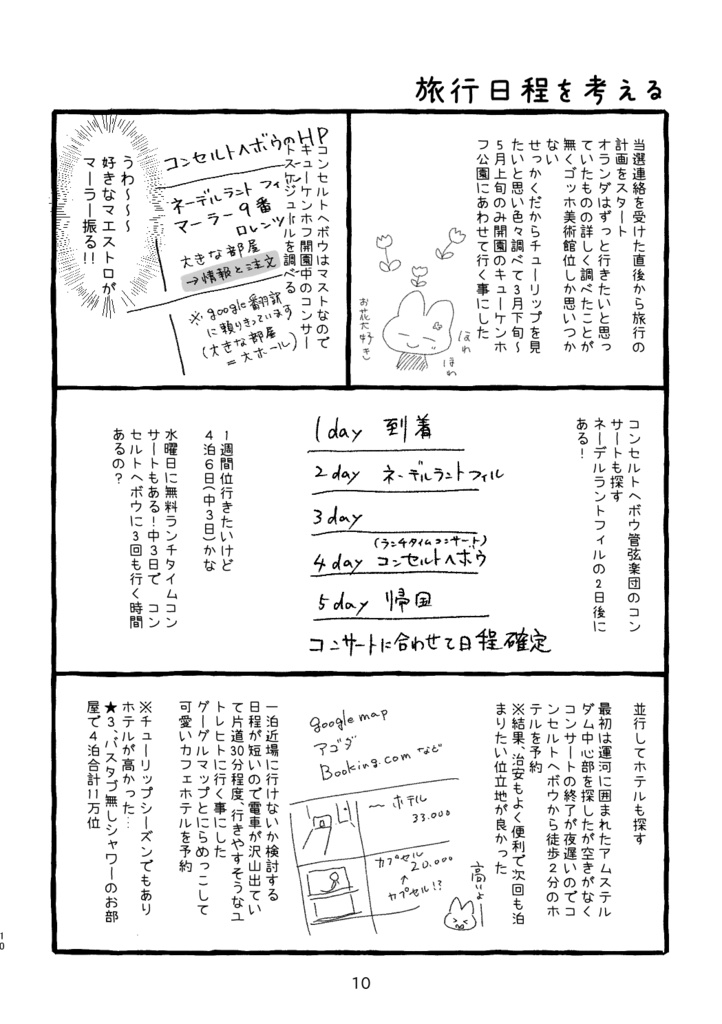 旅行日程を考える
当選連絡を受けた直後から旅行の
計画をスタート
オランダはずっと行きたいと思っ
ていたものの詳しく調べたことが
無くゴッホ美術館位しか思いつか
ない
せっかくだからチューリップを見
たいと思い色々調べて3月下旬～
5月上旬のみ開園のキューケンホ
フ公園にあわせて行く事にした
お花大好き
ほわ
ほわ
コンセルトヘボウはマストなので
キューケンホフ開園中のコンサー
トスケジュールを調べる
コンセルトヘボウのHP
ネーデルラントフィル
マーラー9番
ロレンツ
大きな部屋
→情報と注文
※google翻訳
に頼りきっています
(大きな部屋
=大ホール)
うわ～～～
好きなマエストロが
マーラー振る!!
コンセルトヘボウ管弦楽団のコン
サートも探す
ネーデルラントフィルの2日後に
ある!
1day 到着
2day ネーデルラントフィル
3day
(ランチタイムコンサート)
4day コンセルトヘボウ
5day 帰国
コンサートに合わせて日程確定
1週間位行きたいけど
4泊6日(中3日)かな
水曜日に無料ランチタイムコン
サートもある!中3日で コン
セルトヘボウに3回も行く時間
あるの?
並行してホテルも探す
最初は運河に囲まれたアムステル
ダム中心部を探したが空きがなく
コンサートの終了が夜遅いのでコ
ンセルトヘボウから徒歩2分のホ
テルを予約
※結果、治安もよく便利で次回も泊
まりたい位立地が良かった
google map
アゴダ
Booking.comなど
～ホテル
33.000
カプセル
20.000
↑
カプセル!?
高いよ
一泊近場に行けないか検討する
日程が短いので電車が沢山出てい
て片道30分程度、行きやすそうなユ
トレヒトに行く事にした
グーグルマップとにらめっこして
可愛いカフェホテルを予約
※チューリップシーズンでもあり
ホテルが高かった…
★3、バスタブ無しシャワーのお部
屋で4泊合計11万位
10
10